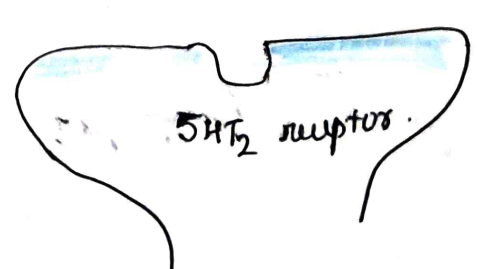 5HT₂ receptor.